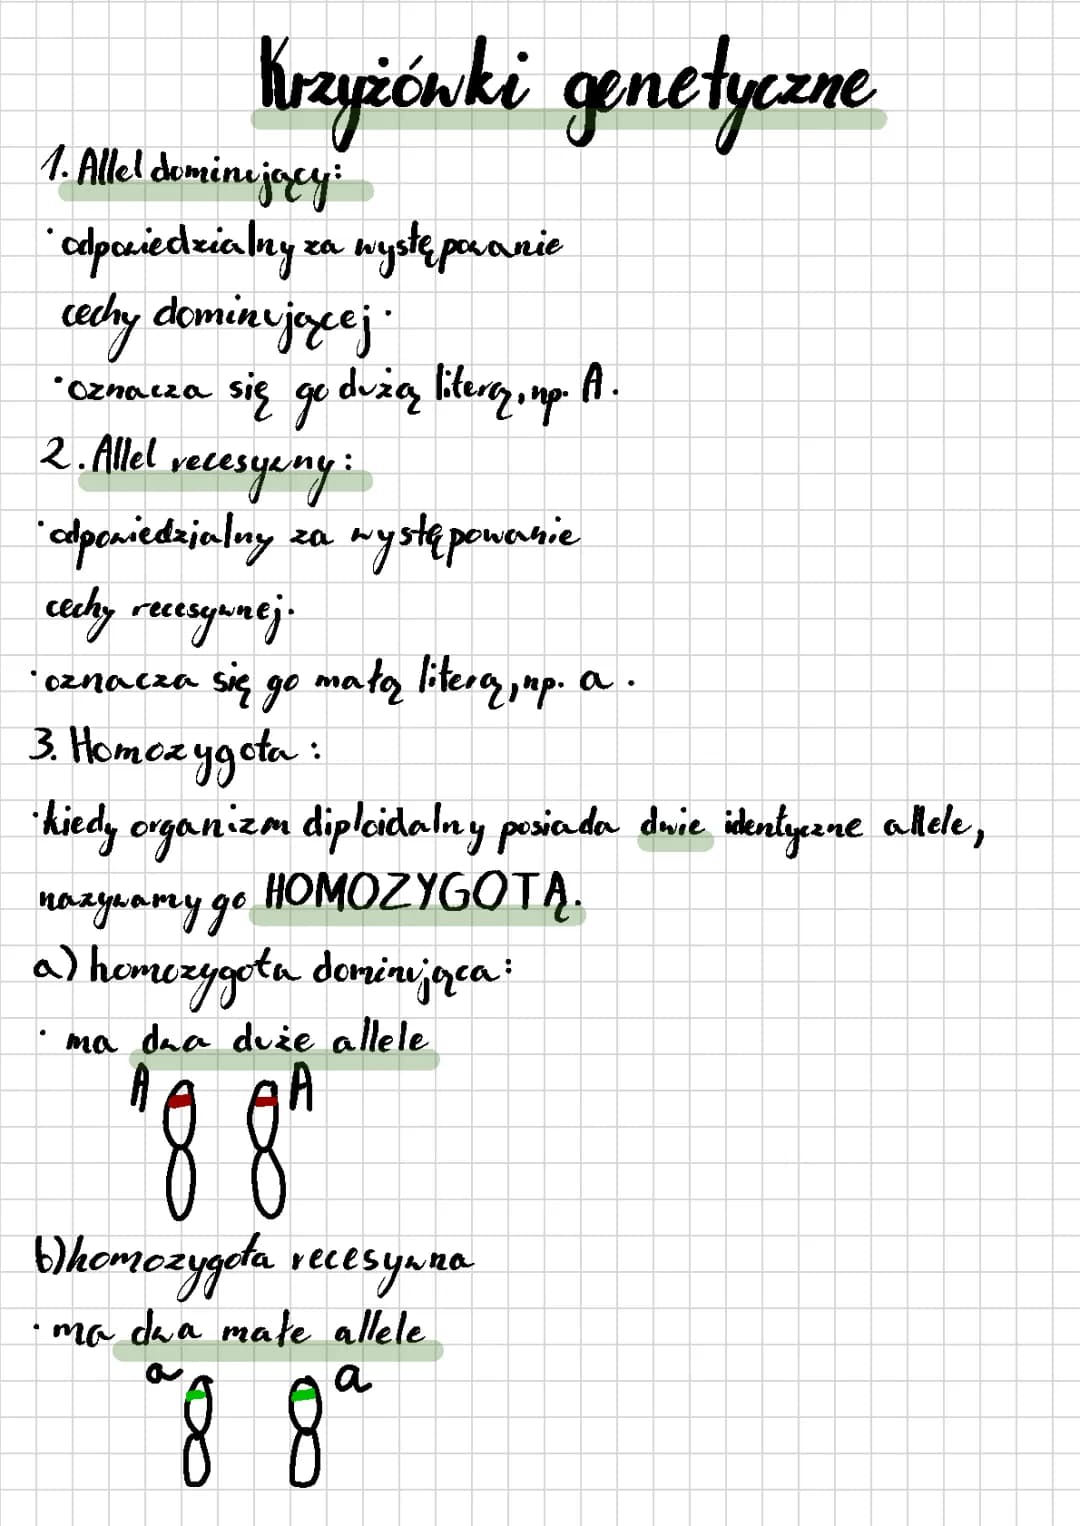 Krzyżówki genetyczne
1. Allel dominujący:
· odpowiedzialny za występowanie
cechy dominującej.
· oznacza się go dużą literą, np. A.
2. Allel recesywny:
· odpowiedzialny za występowanie
cechy recesywnej.
· oznacza się go małą literą, np. a.
3. Homozygota:
· kiedy organizm diploidalny posiada dwie identyczne allele,
nazywamy go HOMOZYGOTĄ.
a) homozygota dominująca:
· ma dwa duże allele
A A
b) homozygota recesywna
· ma dwa małe allele
a a